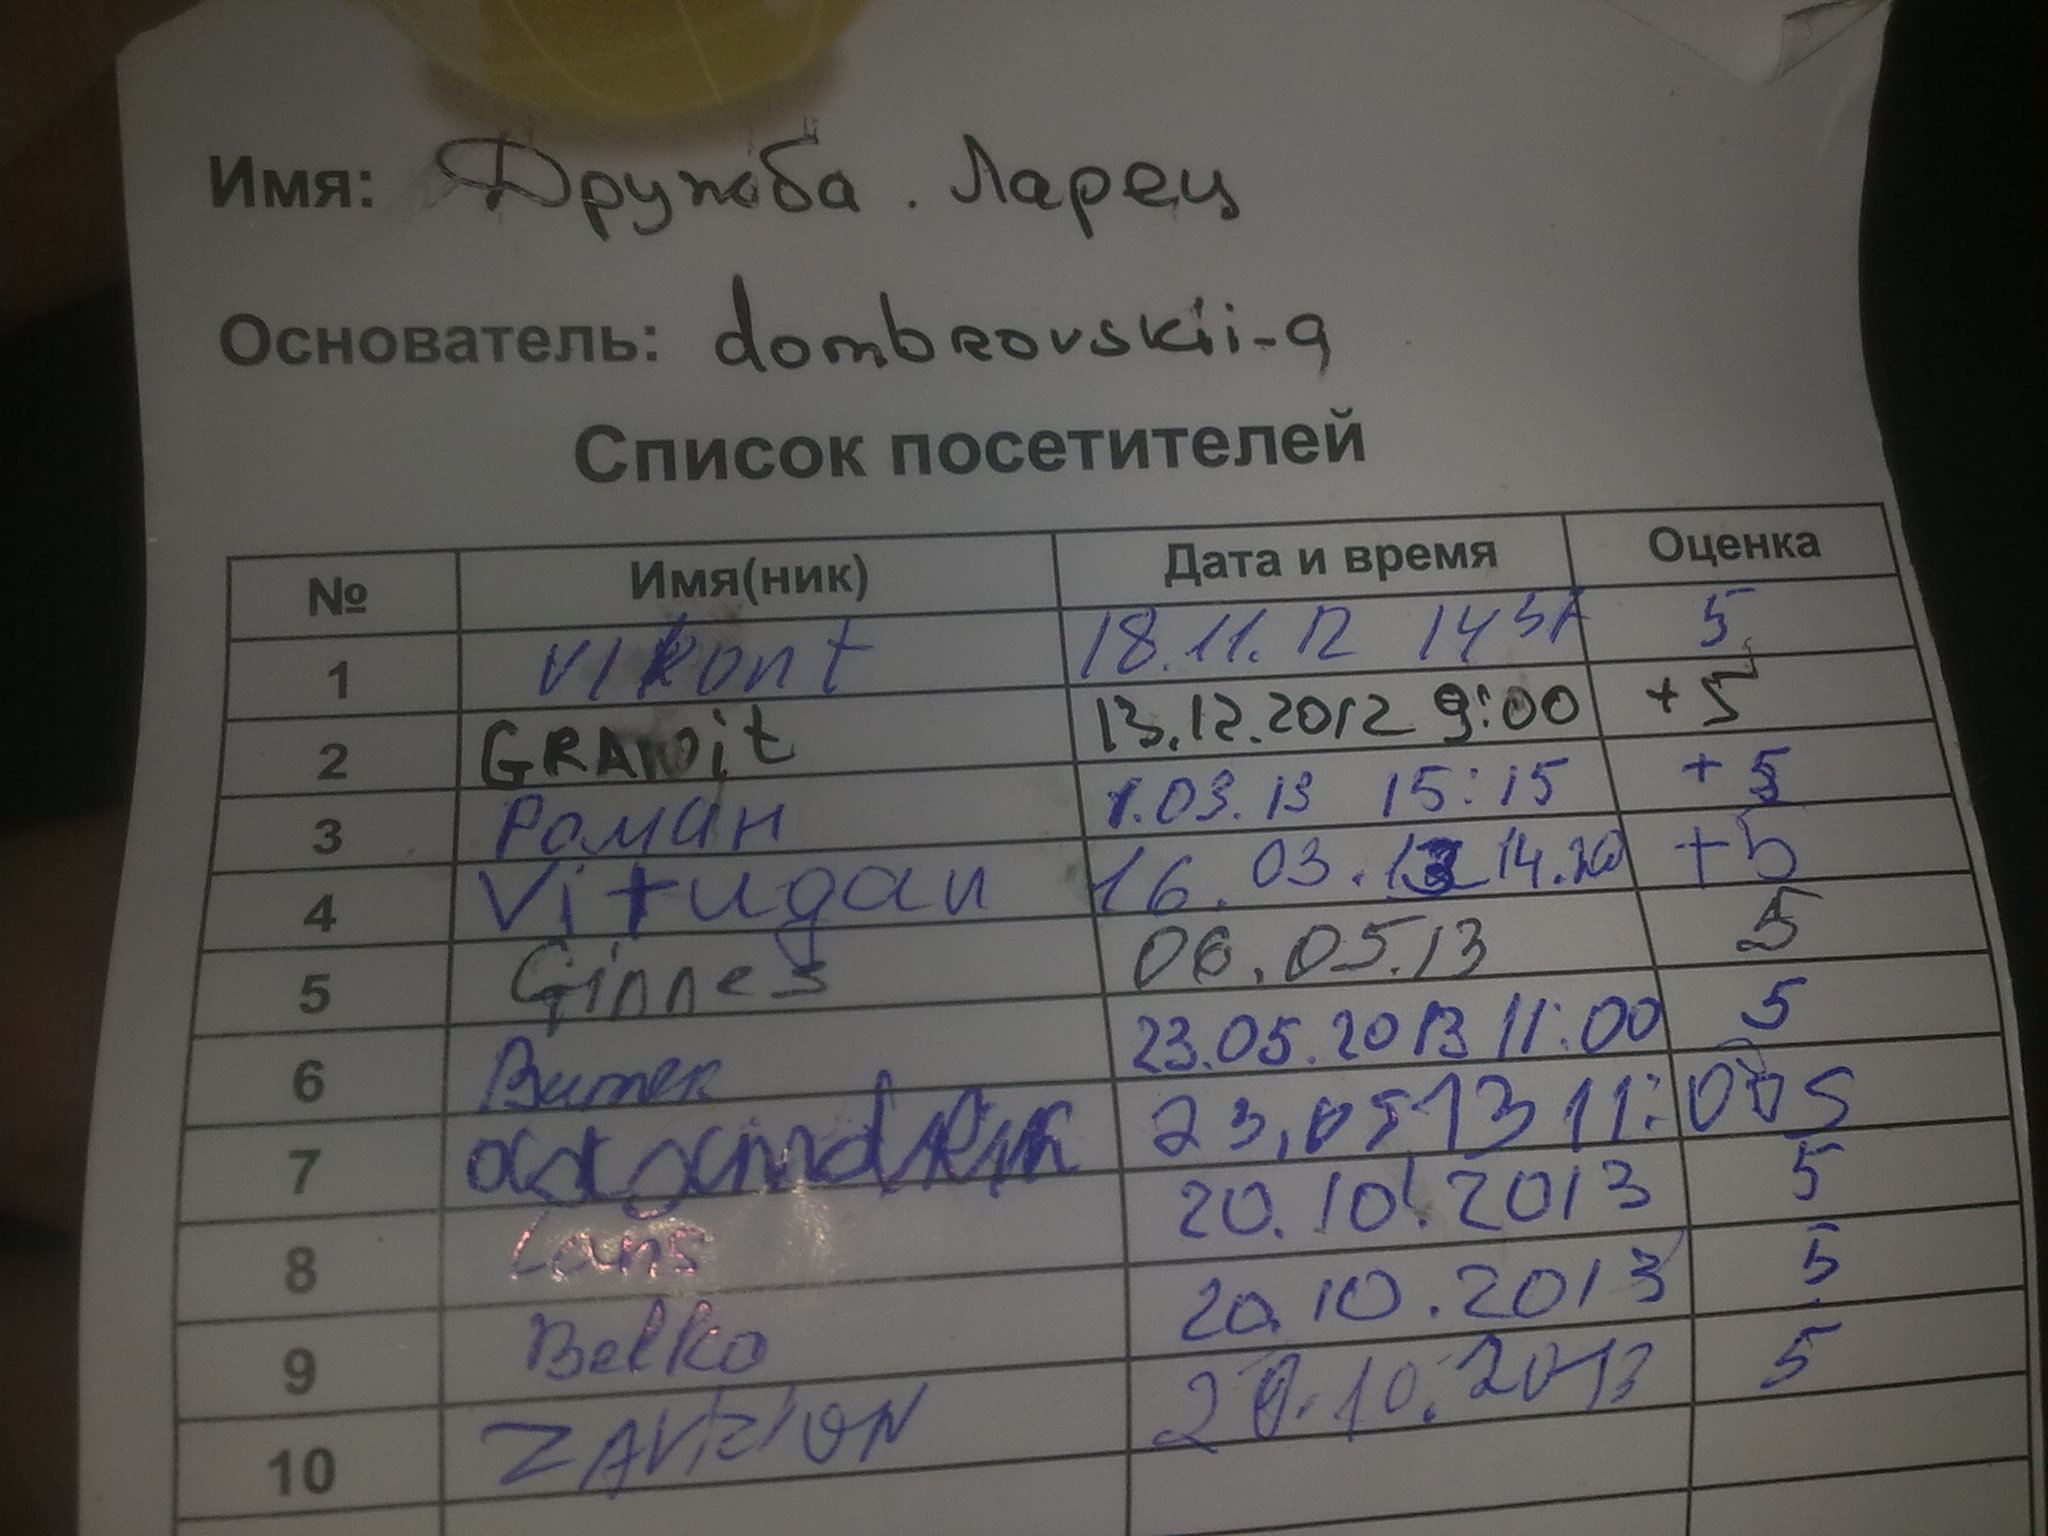 Имя: Дружба. Ларец
Основатель: dombrovskii-9
Список посетителей
№ Имя(ник) Дата и время Оценка
1 Vikont 18.11.12 5
2 GRANit 13.12.2012 9:00 +5
3 Роман 1.03.13 15:15 +5
4 Vitugan 16.03.13 14.20 +5
5 Ginnes 06.05.13 5
6 23.05.2013 11:00 5
7 23.05 13 11:00 5
8 Lans 20.10.2013 5
9 Belko 20.10.2013 5
10 ZAVIZION 20.10.2013 5